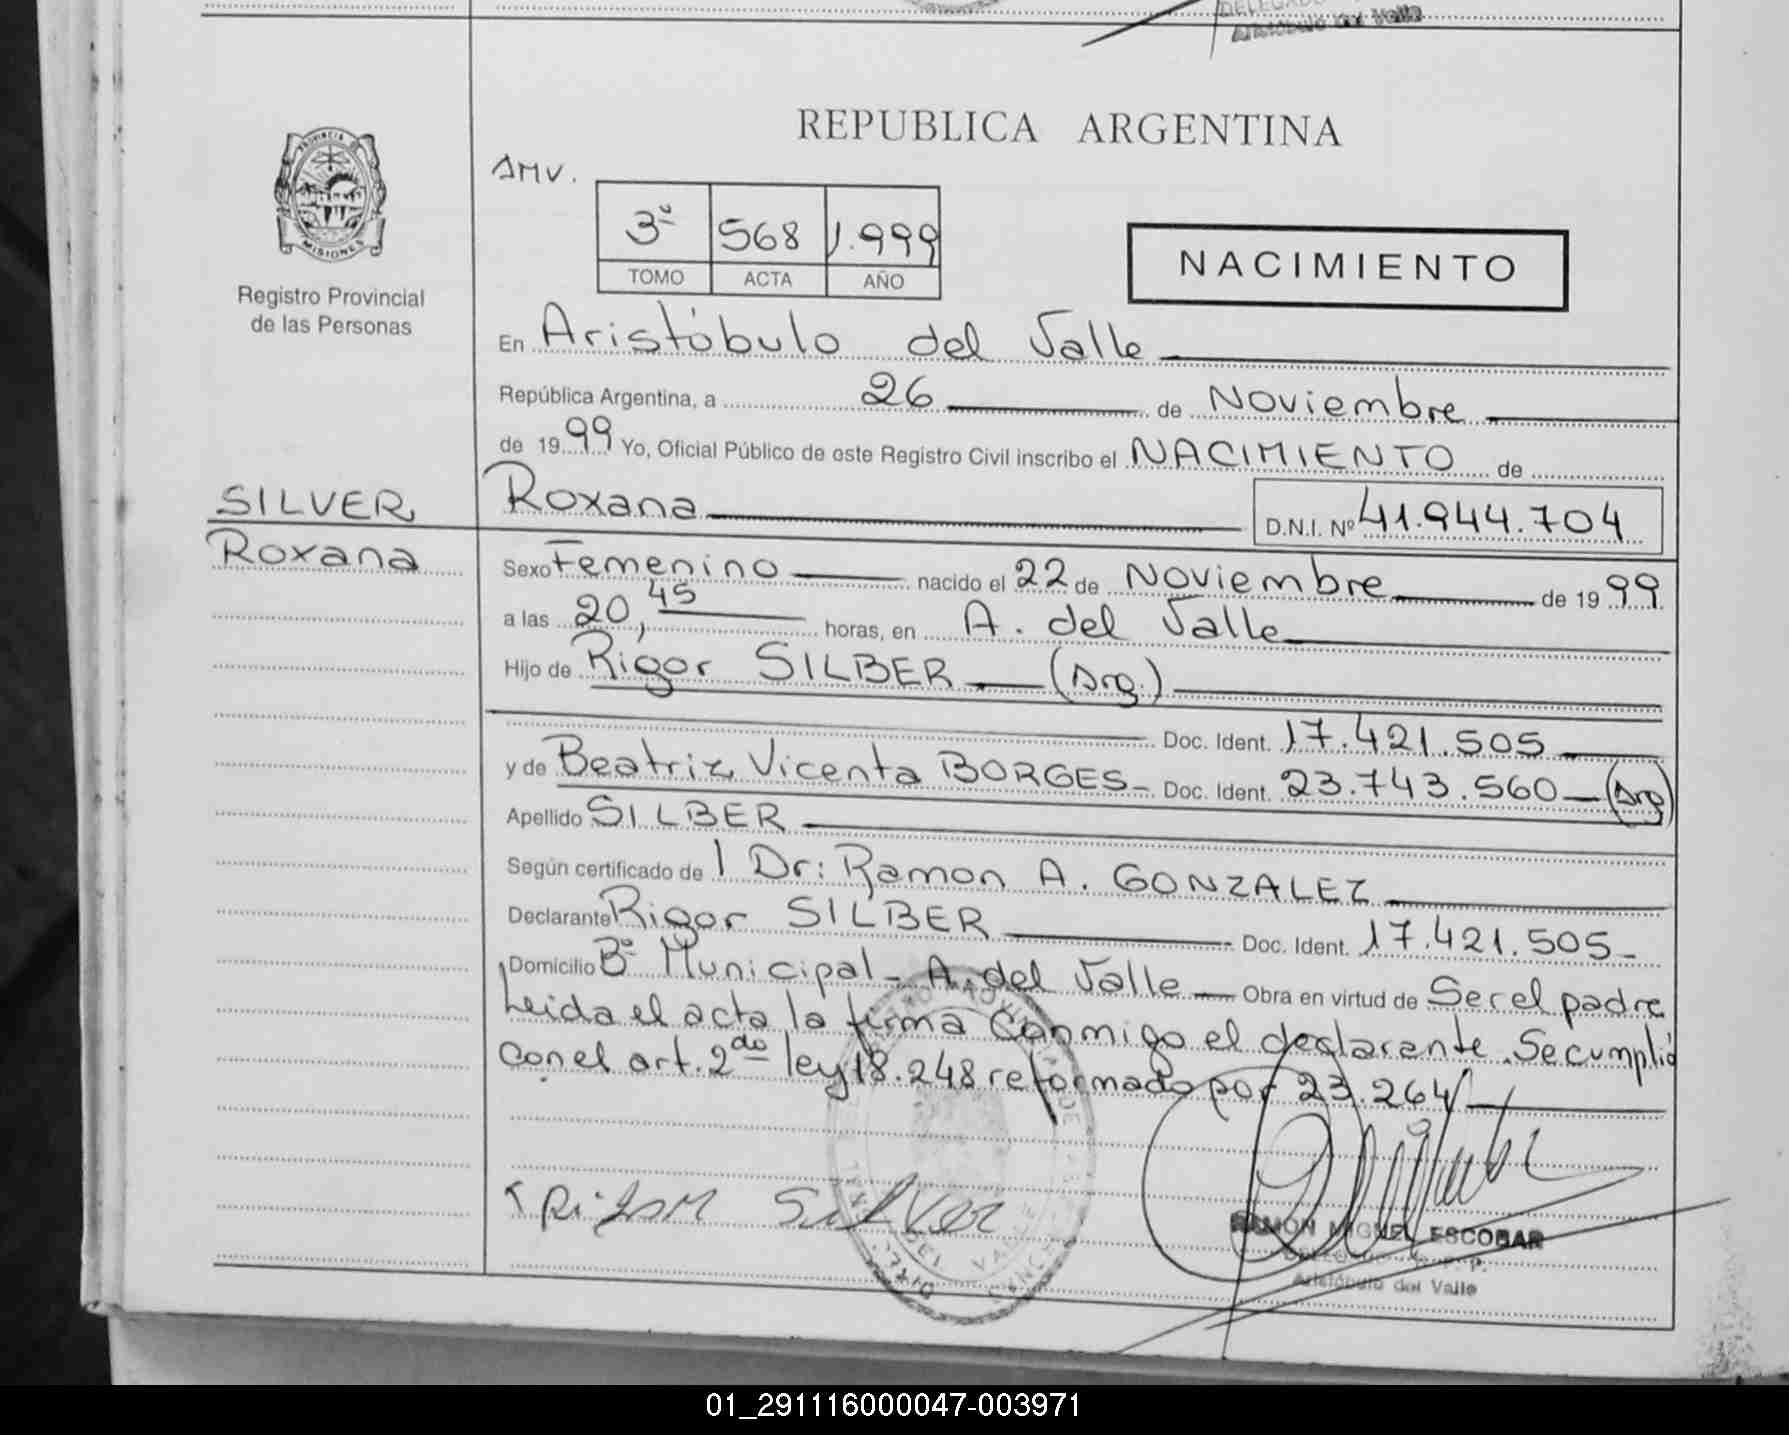 Aristóbulo del Valle
PROVINCIA DE
MISIONES
Registro Provincial
de las Personas
SILVER
Roxana
REPUBLICA ARGENTINA
AMV.
3º 568 1.999
TOMO ACTA AÑO
NACIMIENTO
En Aristóbulo del Valle
República Argentina, a 26 de Noviembre
de 1999 Yo, Oficial Público de este Registro Civil inscribo el NACIMIENTO de
Roxana D.N.I. Nº 41.944.704
Sexo Femenino nacido el 22 de Noviembre de 1999
a las 20,45 horas, en A. del Valle
Hijo de Rigor SILBER (Arg.)
Doc. Ident. 17.421.505
y de Beatriz Vicenta BORGES Doc. Ident. 23.743.560 (Arg)
Apellido SILBER
Según certificado de 1 Dr: Ramon A. GONZALEZ
Declarante Rigor SILBER Doc. Ident. 17.421.505
Domicilio Bº Municipal - A. del Valle Obra en virtud de Ser el padre
Leida el acta la firma conmigo el declarante. Se cumplió
con el art. 2do ley 18.248 reformado por 23.264
Silver
RAMÓN MIGUEL ESCOBAR
Aristóbulo del Valle
01_291116000047-003971